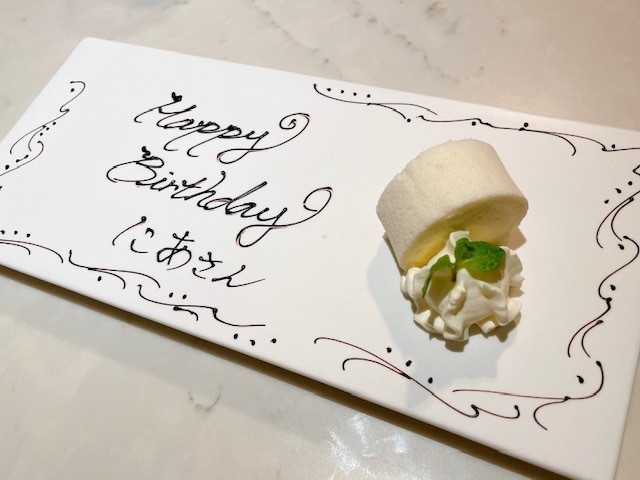 Happy
Birthday
にあさん